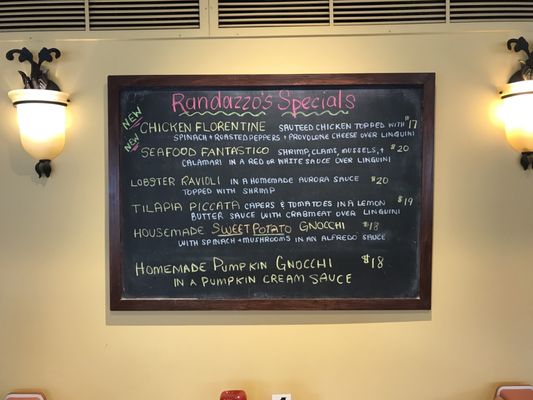 Randazzo's Specials
NEW CHICKEN FLORENTINE SAUTEED CHICKEN TOPPED WITH $17
NEW SPINACH + ROASTED PEPPERS + PROVOLONE CHEESE OVER LINGUINI
SEAFOOD FANTASTICO SHRIMP, CLAMS, MUSSELS, + $20
CALAMARI IN A RED OR WHITE SAUCE OVER LINGUINI
LOBSTER RAVIOLI IN A HOMEMADE AURORA SAUCE $20
TOPPED WITH SHRIMP
TILAPIA PICCATA CAPERS & TOMATOES IN A LEMON $19
BUTTER SAUCE WITH CRABMEAT OVER LINGUINI
HOUSEMADE SWEET POTATO GNOCCHI $18
WITH SPINACH + MUSHROOMS IN AN ALFREDO SAUCE
HOMEMADE PUMPKIN GNOCCHI $18
IN A PUMPKIN CREAM SAUCE